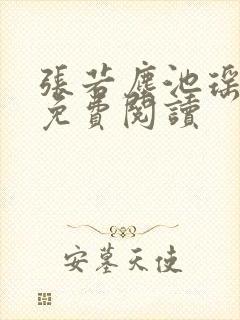 張若塵池瑤
免費閱讀
安墓天使